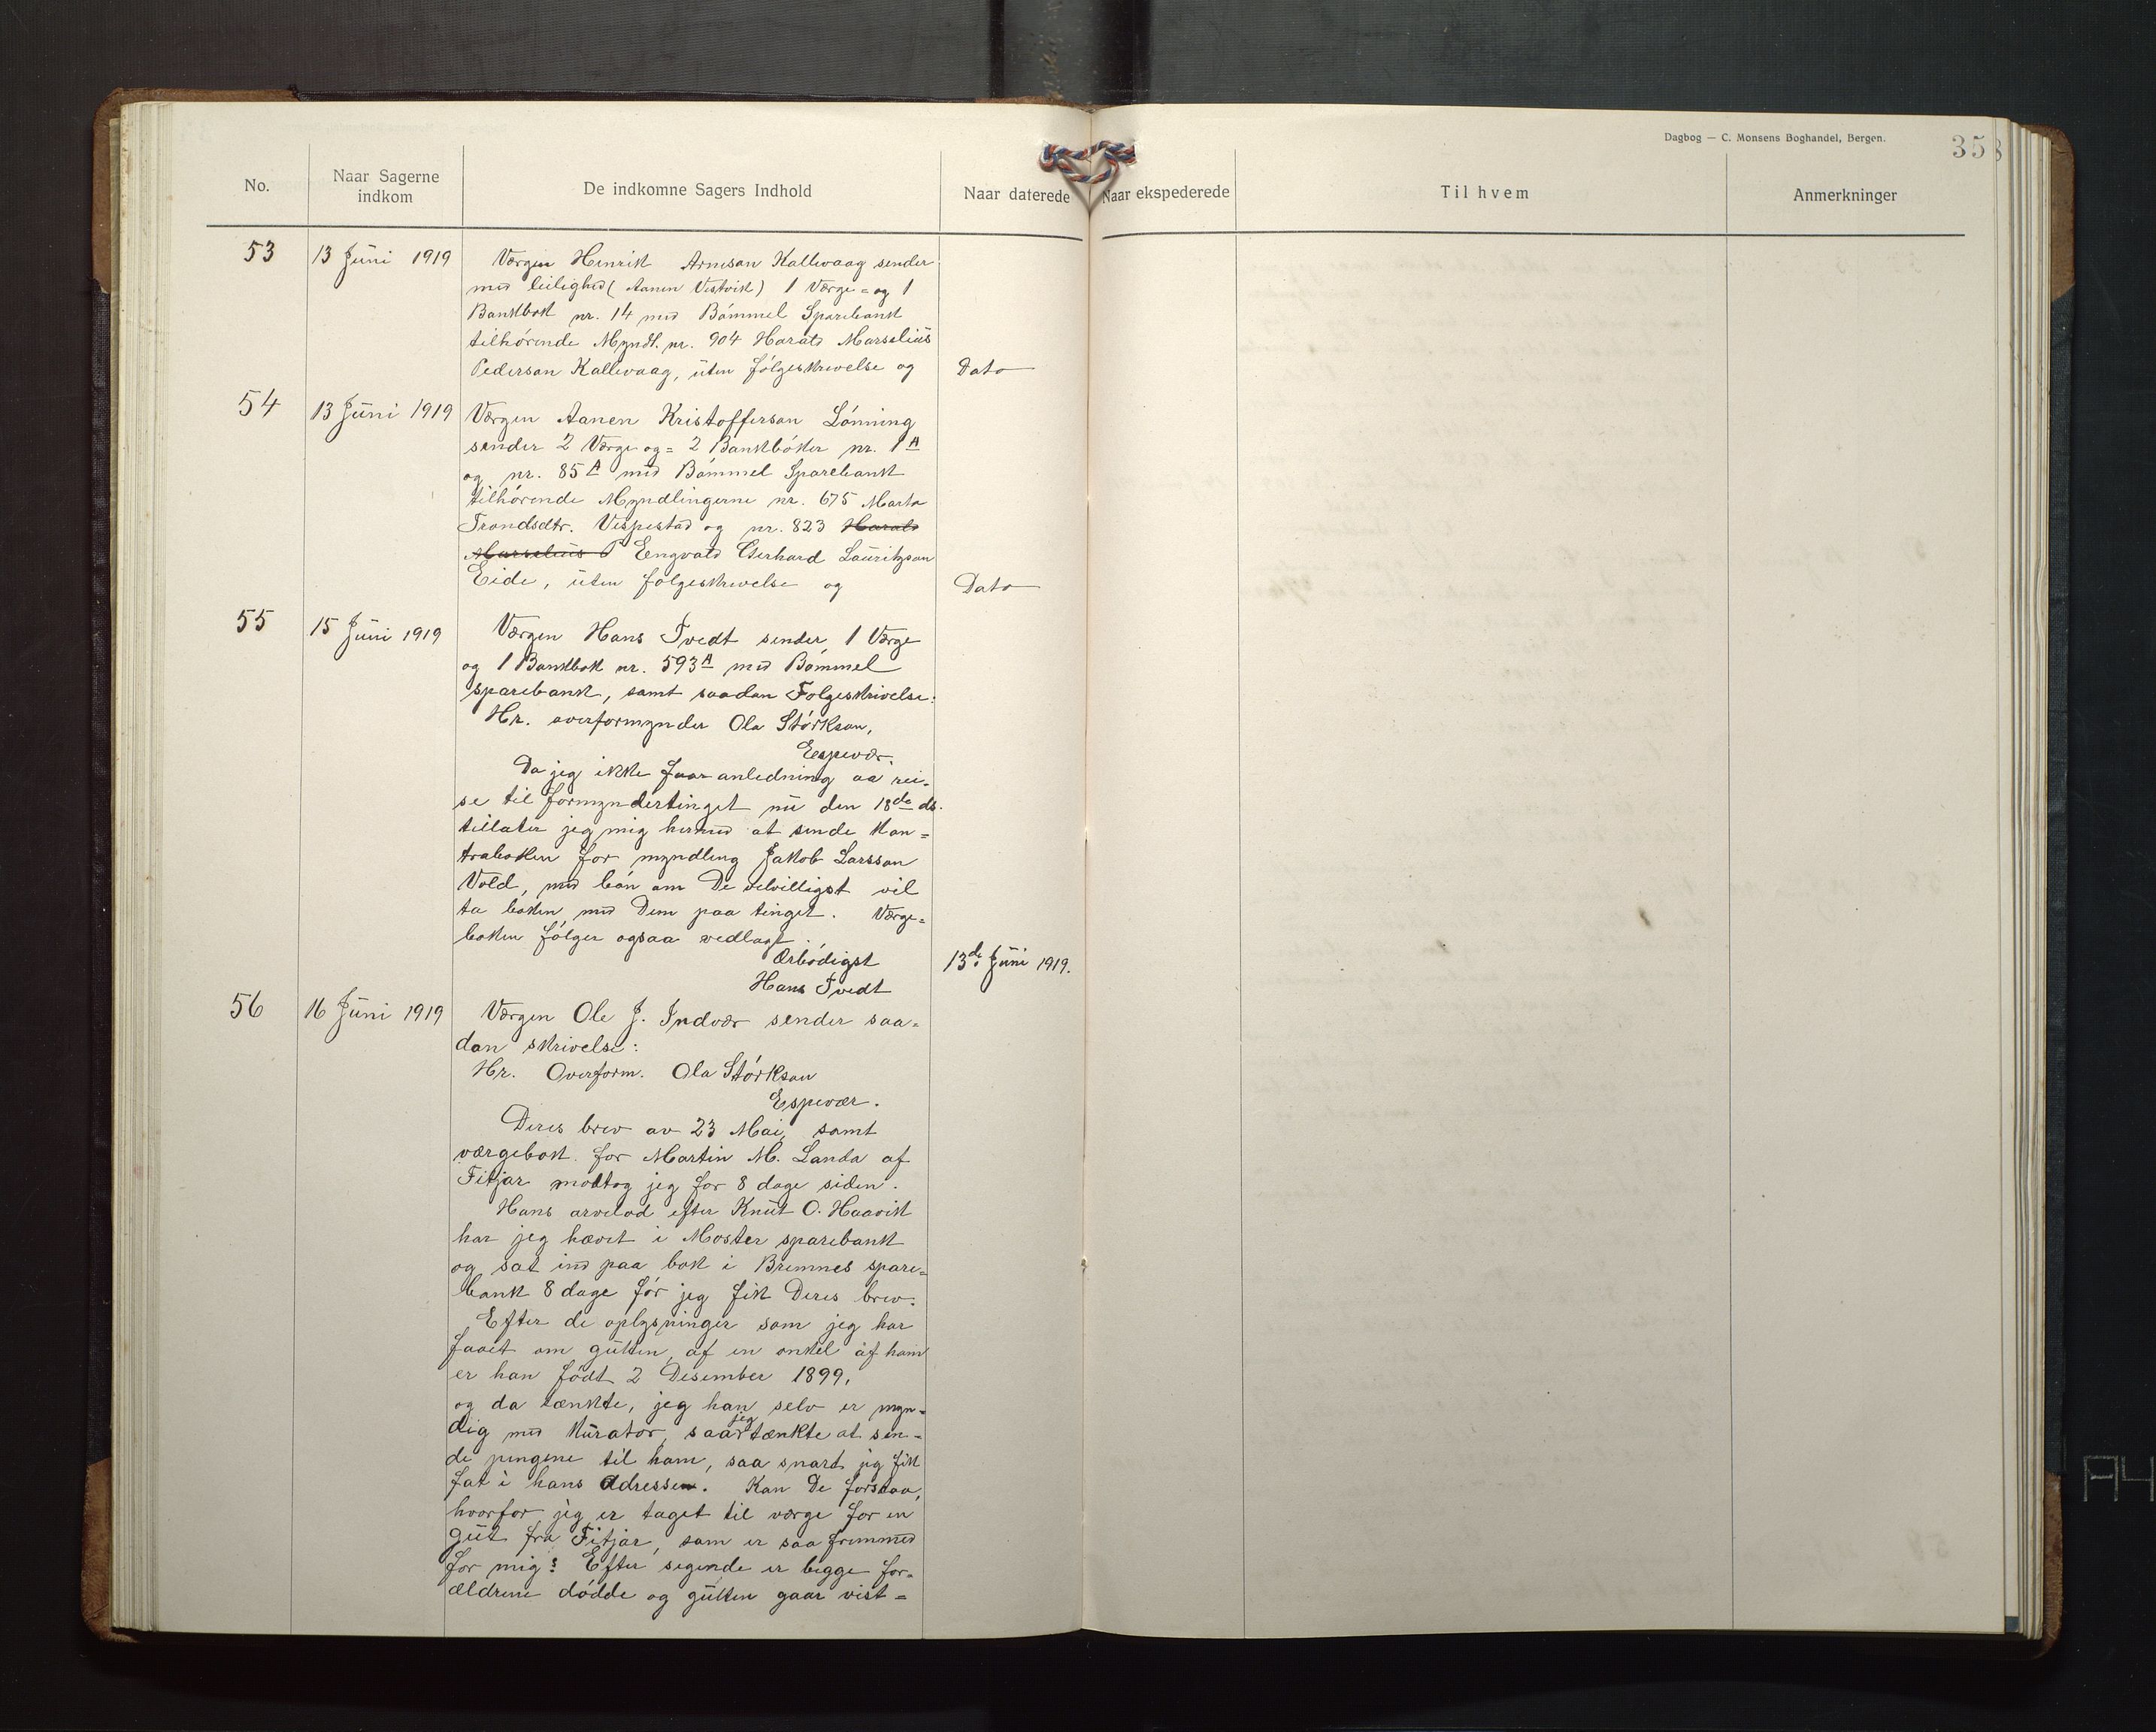 Dagbog — C. Monsens Boghandel, Bergen.
358
No.
Naar Sagerne
indkom
De indkomne Sagers Indhold
Naar daterede
Naar ekspederede
Til hvem
Anmerkninger
53
13 Juni 1919
Værgen Henrik Arneson Kallevaag sender
med leilighed (Aanen Vestvik) 1 Værge= og 1
Bankbok nr. 14 med Bømmel Sparebank
tilhørende Myndl. nr. 904 Harald Marselius
Pederson Kallevaag, uten følgeskrivelse og
Dato
54
13 Juni 1919
Værgen Aanen Kristofferson Lønning
sender 2 Værge og= 2 Bankbøker nr. 1A
og nr. 85A med Bømmel Sparebank
tilhørende Myndlingerne nr. 675 Marta
Trondsdtr. Vespestad og nr. 823 Harald
Marselius P Engvald Gerhard Lauritzson
Eide, uten følgeskrivelse og
Dato
55
15 Juni 1919
Værgen Hans Tvedt sender 1 Værge
og 1 Bankbok nr. 593A med Bømmel
sparebank, samt saadan Følgeskrivelse:
Hr. overformynder Ola Størkson,
Espevær.
Da jeg ikke faar anledning aa rei-
se til formyndertinget nu den 18de ds.
tillater jeg mig hermed at sende kon=
traboken for myndling Jakob Larsson
Vold, med bøn om De velvilligst vil
ta boken med Dem paa tinget. Værge=
boken følger ogsaa vedlagt.
Ærbødigst
Hans Tvedt
13de Juni 1919.
56
16 Juni 1919
Værgen Ole J. Indvær sender saa=
dan skrivelse:
Hr. Overform. Ola Størkson
Espevær.
Deres brev av 23 Mai, samt
værgebok for Martin M. Landa af
Fitjar mottog jeg for 8 dage siden.
Hans arvelod efter Knut O. Haavik
har jeg hævet i Moster sparebank
og sat ind paa bok i Bremnes spare=
bank 8 dage før jeg fik Deres brev.
Efter de oplysninger som jeg har
faaet om gutten, af en onkel af ham
er han født 2 Desember 1899,
og da tænkte, jeg han selv er myn=
dig med Kurator, saa jeg tænkte at sen=
de pengene til ham, saa snart jeg fik
fat i hans adressen. Kan De forstaa,
hvorfor jeg er taget til værge for en
gut fra Fitjar, som er saa fremmed
for mig? Efter sigende er begge for=
ældrene dødde og gutten gaar vist=